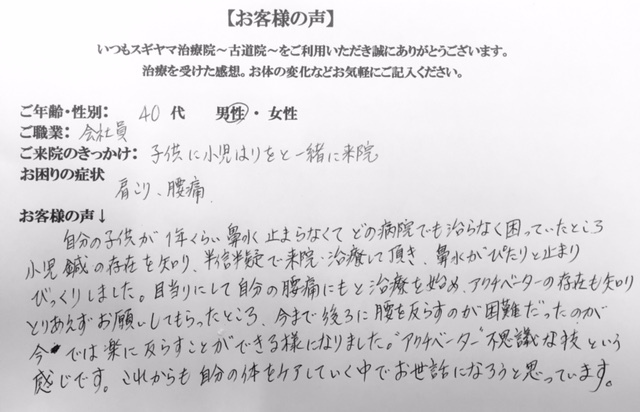 【お客様の声】
いつもスギヤマ治療院～古道院～をご利用いただき誠にありがとうございます。
治療を受けた感想。お体の変化などお気軽にご記入ください。
ご年齢・性別： 40 代 男性 ・ 女性
ご職業： 会社員
ご来院のきっかけ： 子供に小児はりをと一緒に来院
お困りの症状
肩こり、腰痛
お客様の声↓
自分の子供が1年くらい鼻水止まらなくてどの病院でも治らなく困っていたところ
小児鍼の存在を知り、半信半疑で来院・治療して頂き、鼻水がぴたりと止まり
びっくりしました。目当りにして自分の腰痛にもと治療を始め、アクチベーターの存在も知り
とりあえずお願いしてもらったところ、今まで後ろに腰を反らすのが困難だったのが
今では楽に反らすことができる様になりました。"アクチベーター"不思議な技という
感じです。これからも自分の体をケアしていく中でお世話になろうと思っています。